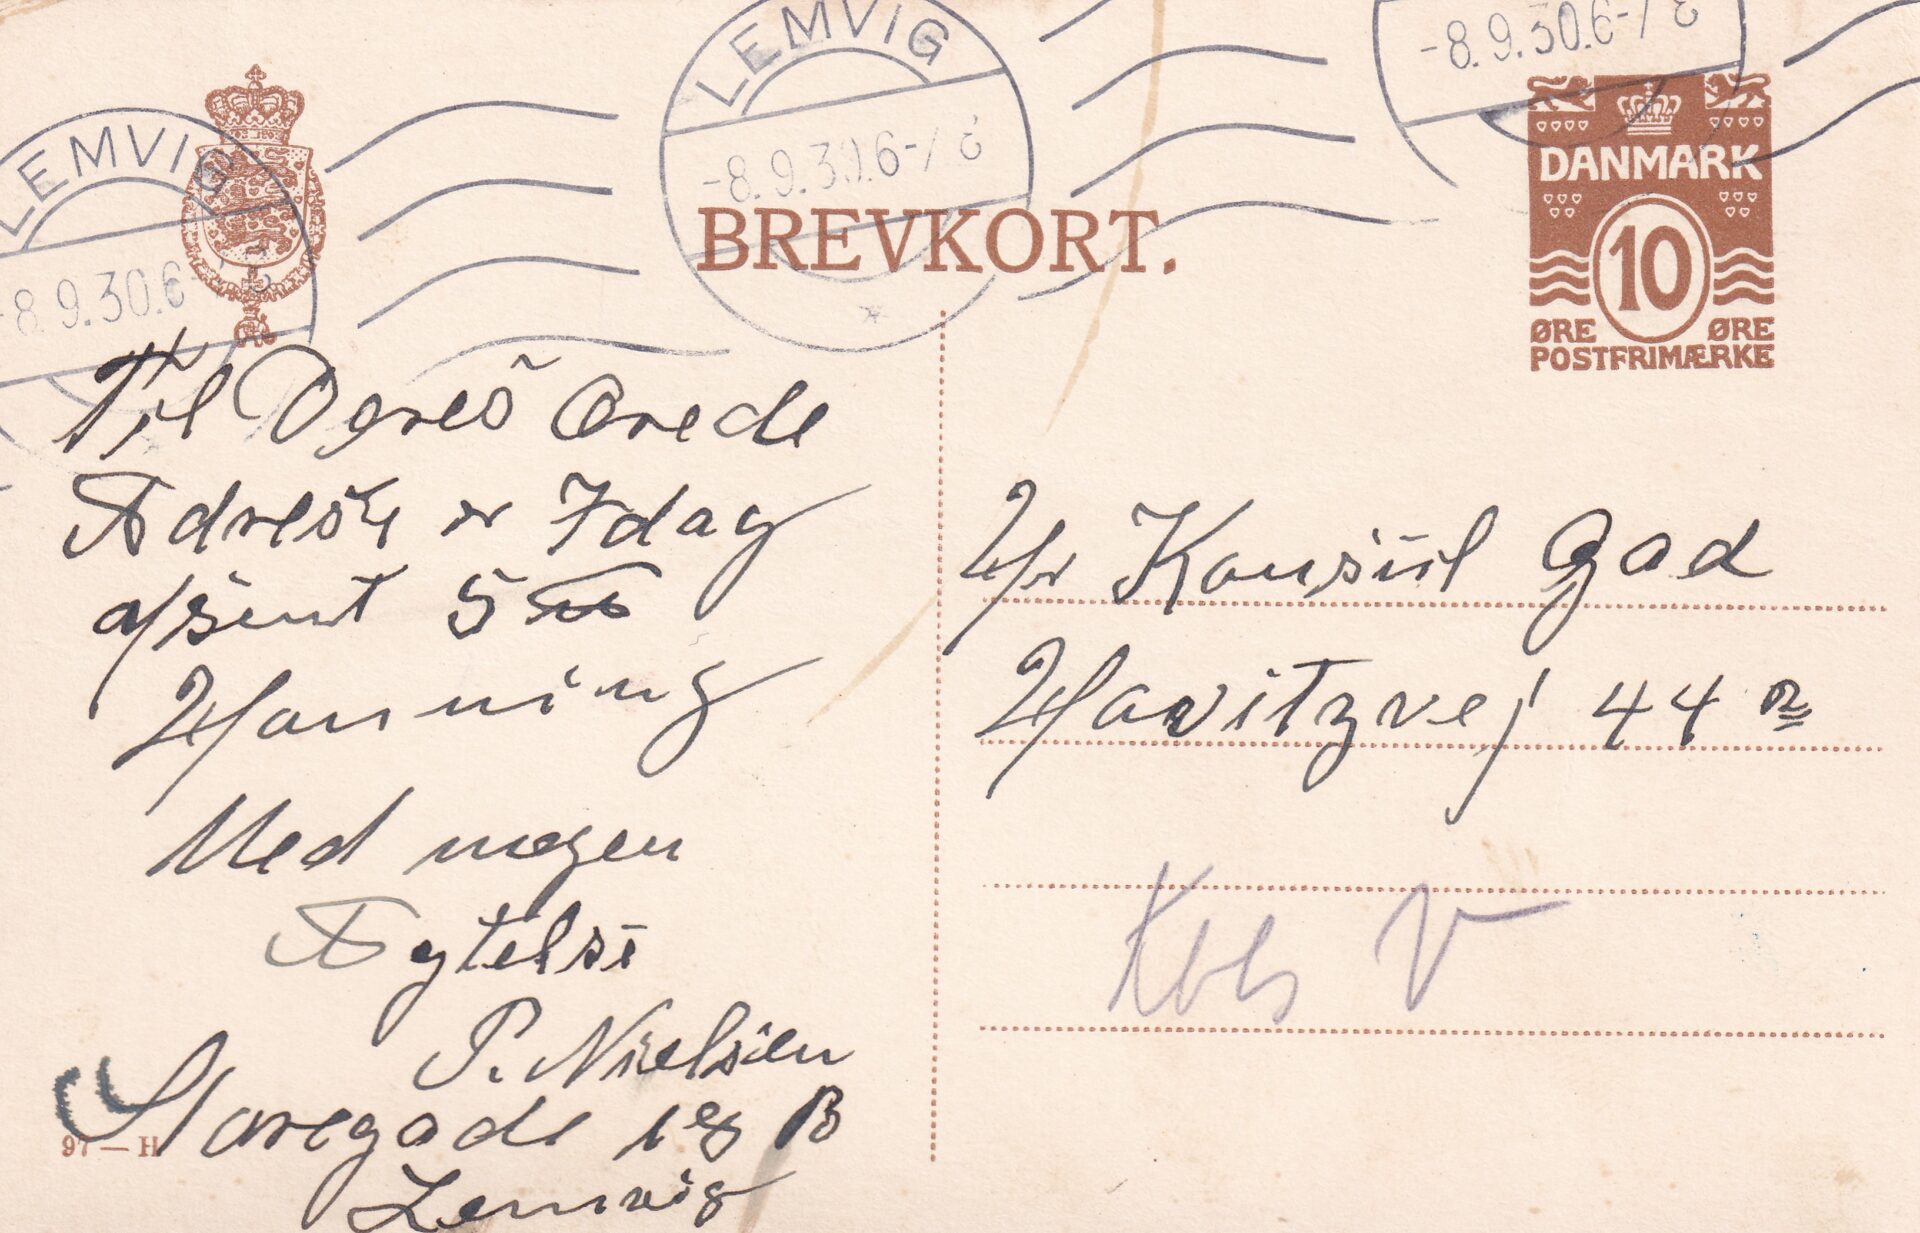 LEMVIG
-8.9.30.6-7
LEMVIG
-8.9.30.6-7
-8.9.30.6-7
BREVKORT.
DANMARK
10
ØRE ØRE
POSTFRIMÆRKE
Til Deres ærede
Adresse er Idag
afsent 5
Honning
Med megen
Agtelse
P. Nielsen
Storegade 18 B
Lemvig
Hr Konsul Gad
Havitzvej 44
Kbh V
97 — H